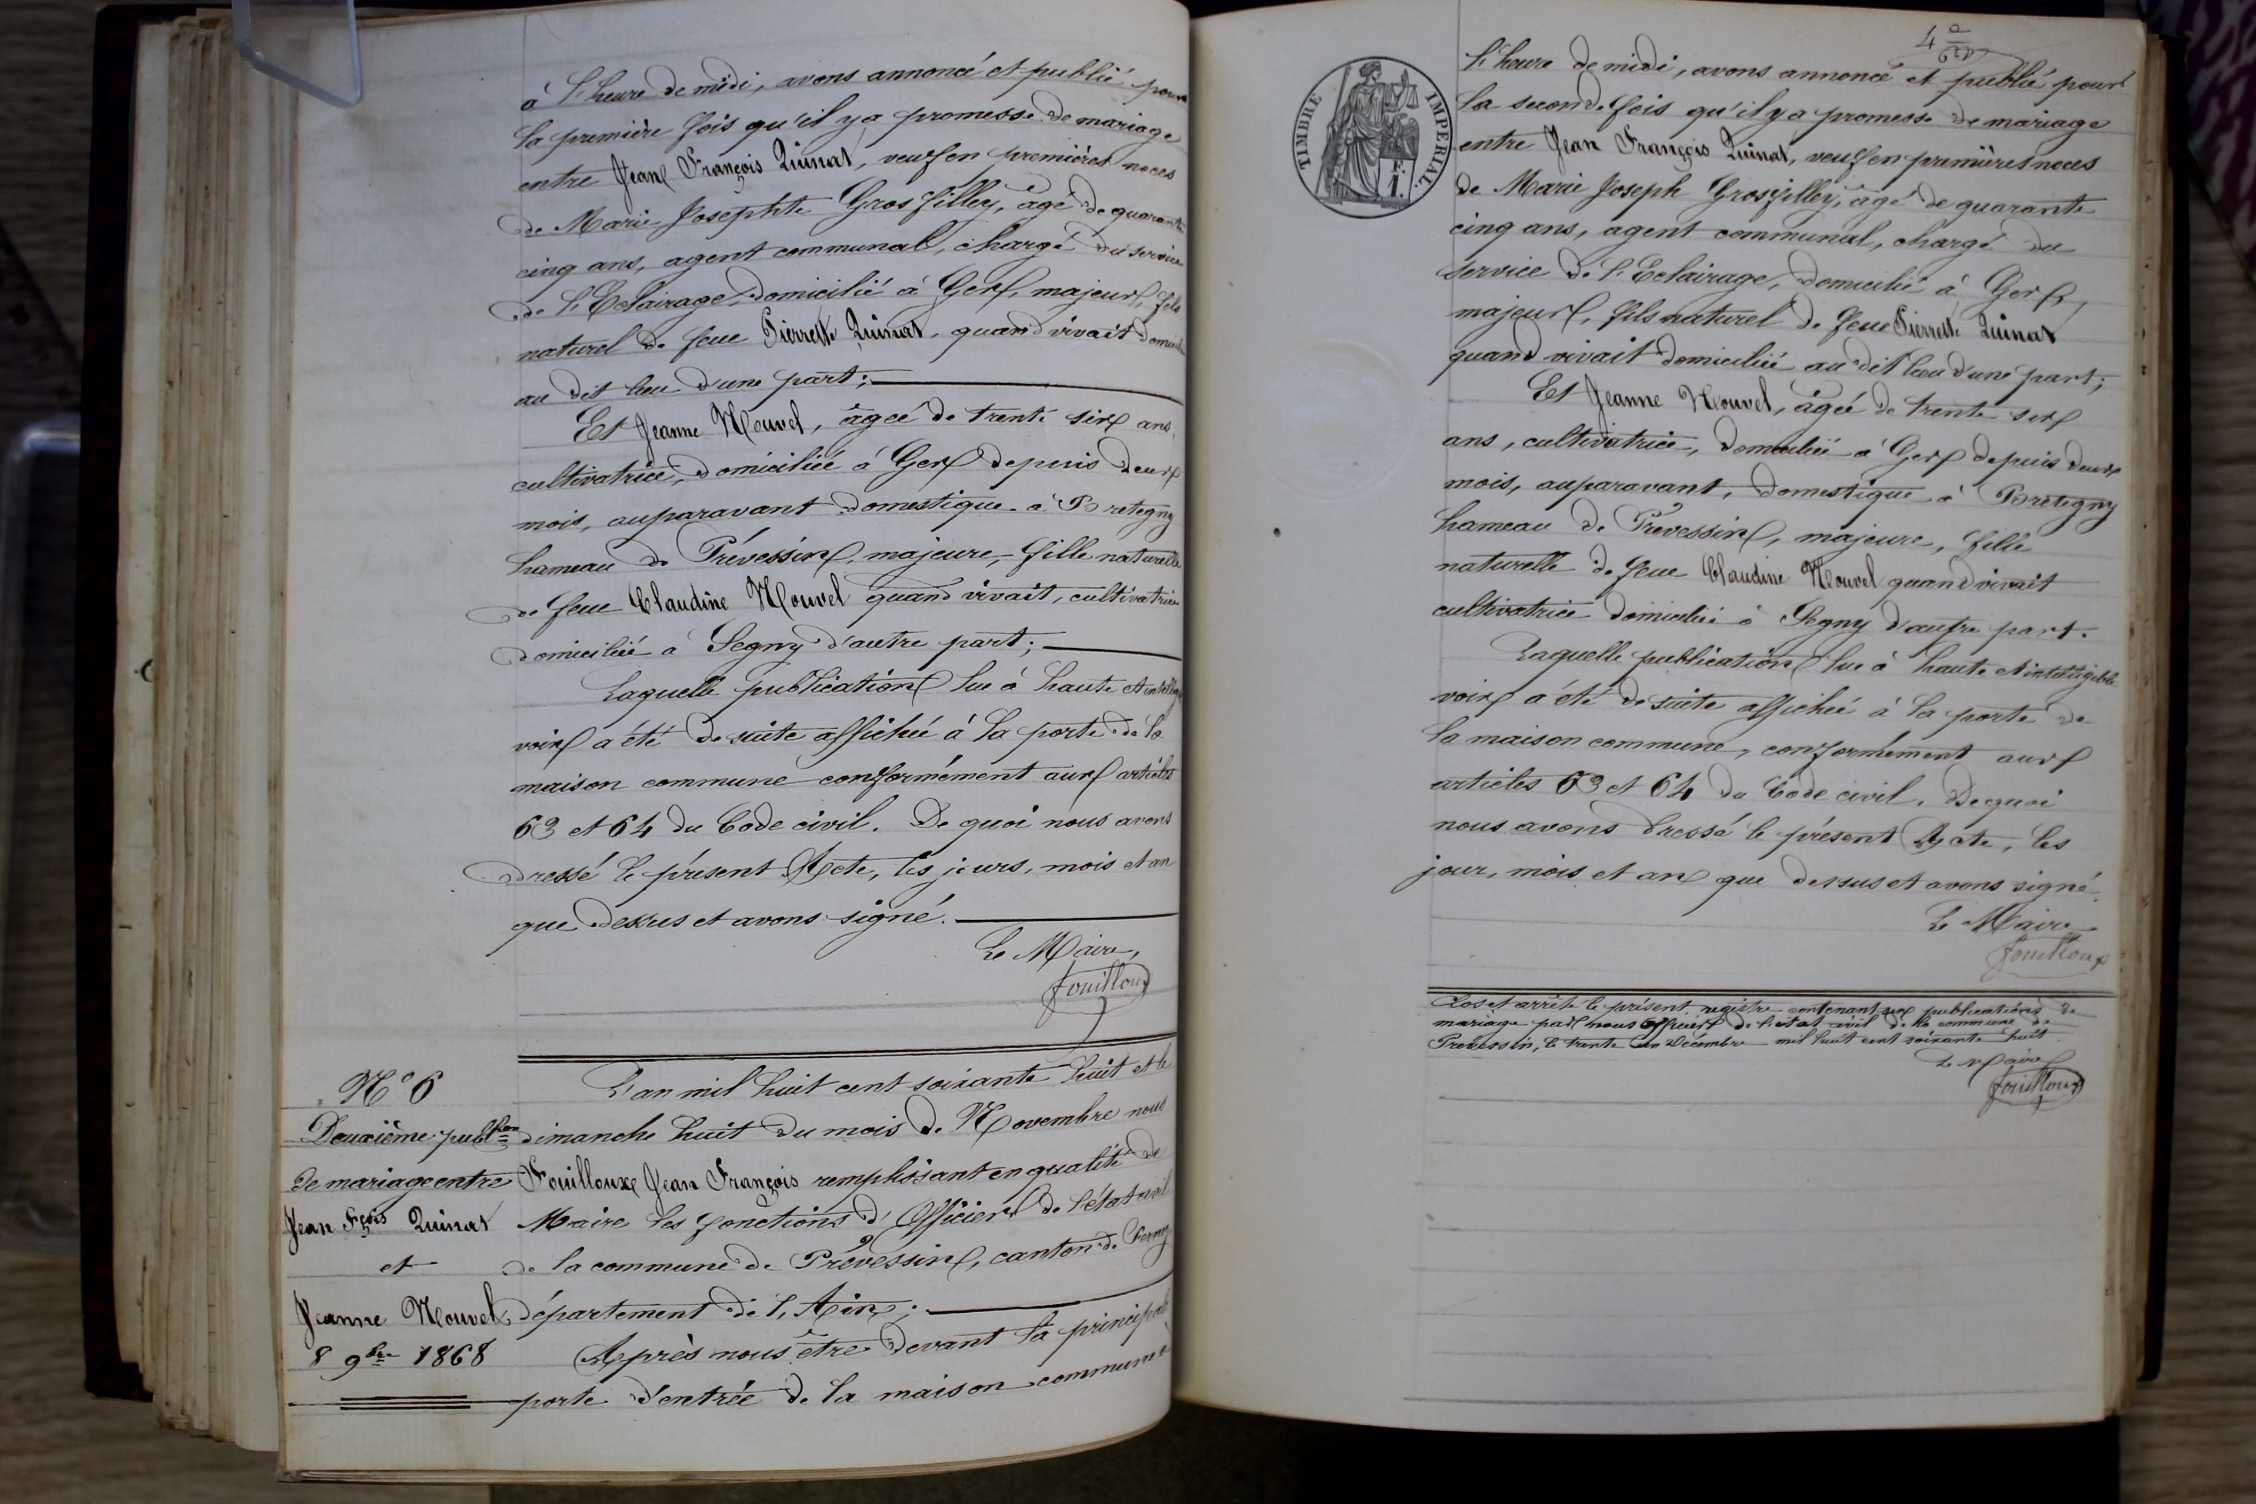 à l'heure de midi, avons annoncé et publié pour
la première fois qu'il y a promesse de mariage
entre Jean François Quinat, veuf en premières noces
de Marie Josephte Grosfilley, âgé de quarante
cinq ans, agent communal, chargé du service
de l'Eclairage, domicilié à Gex, majeur, fils
naturel de feue Pierrette Quinat, quand vivait
au dit lieu d'une part;
Et Jeanne Nouvel, âgée de trente six ans,
cultivatrice, domiciliée à Gex depuis deux
mois, auparavant domestique à Bretegny
hameau de Prévessin, majeure, fille naturelle
de feue Claudine Nouvel quand vivait, cultivatrice
domiciliée à Segny d'autre part;
Laquelle publication lue à haute et
voix a été de suite affichée à la porte de la
maison commune conformément aux articles
63 et 64 du Code civil. De quoi nous avons
dressé le présent Acte, les jours, mois et an
que dessus et avons signé.
Le Maire,
Fouilloux
N° 6
Deuxième publion
de mariage entre
Jean Fçois Quinat
et
Jeanne Nouvel
8 9bre 1868
L'an mil huit cent soixante huit et le
dimanche huit du mois de Novembre nous
Fouilloux Jean François remplissant en qualité de
Maire les fonctions d'Officier de l'état civil
de la commune de Prévessin, canton de Ferney
département de l'Ain;
Après nous être devant la principale
porte d'entrée de la maison commune à
4e
TIMBRE IMPERIAL
F.
1.
l'heure de midi, avons annoncé et publié pour
la seconde fois qu'il y a promesse de mariage
entre Jean François Quinat, veuf en premières noces
de Marie Joseph Grosfilley, âgé de quarante
cinq ans, agent communal, chargé du
service de l'Eclairage, domicilié à Gex,
majeur, fils naturel de feue Pierrette Quinat
quand vivait domiciliée au dit lieu d'une part;
Et Jeanne Nouvel, âgée de trente six
ans, cultivatrice, domiciliée à Gex depuis deux
mois, auparavant, domestique à Bretigny
hameau de Prévessin, majeure, fille
naturelle de feue Claudine Nouvel quand vivait
cultivatrice domiciliée à Segny d'autre part.
Laquelle publication lue à haute et intelligible
voix a été de suite affichée à la porte de
la maison commune, conformément aux
articles 63 et 64 du Code civil. De quoi
nous avons dressé le présent Acte, les
jour, mois et an que dessus et avons signé.
Le Maire
Fouilloux
Clos et arrêté le présent registre contenant six publications de
mariage par nous Officier de l'état civil de la commune de
Prévessin, le trente un Décembre mil huit cent soixante huit
Le Maire
Fouilloux